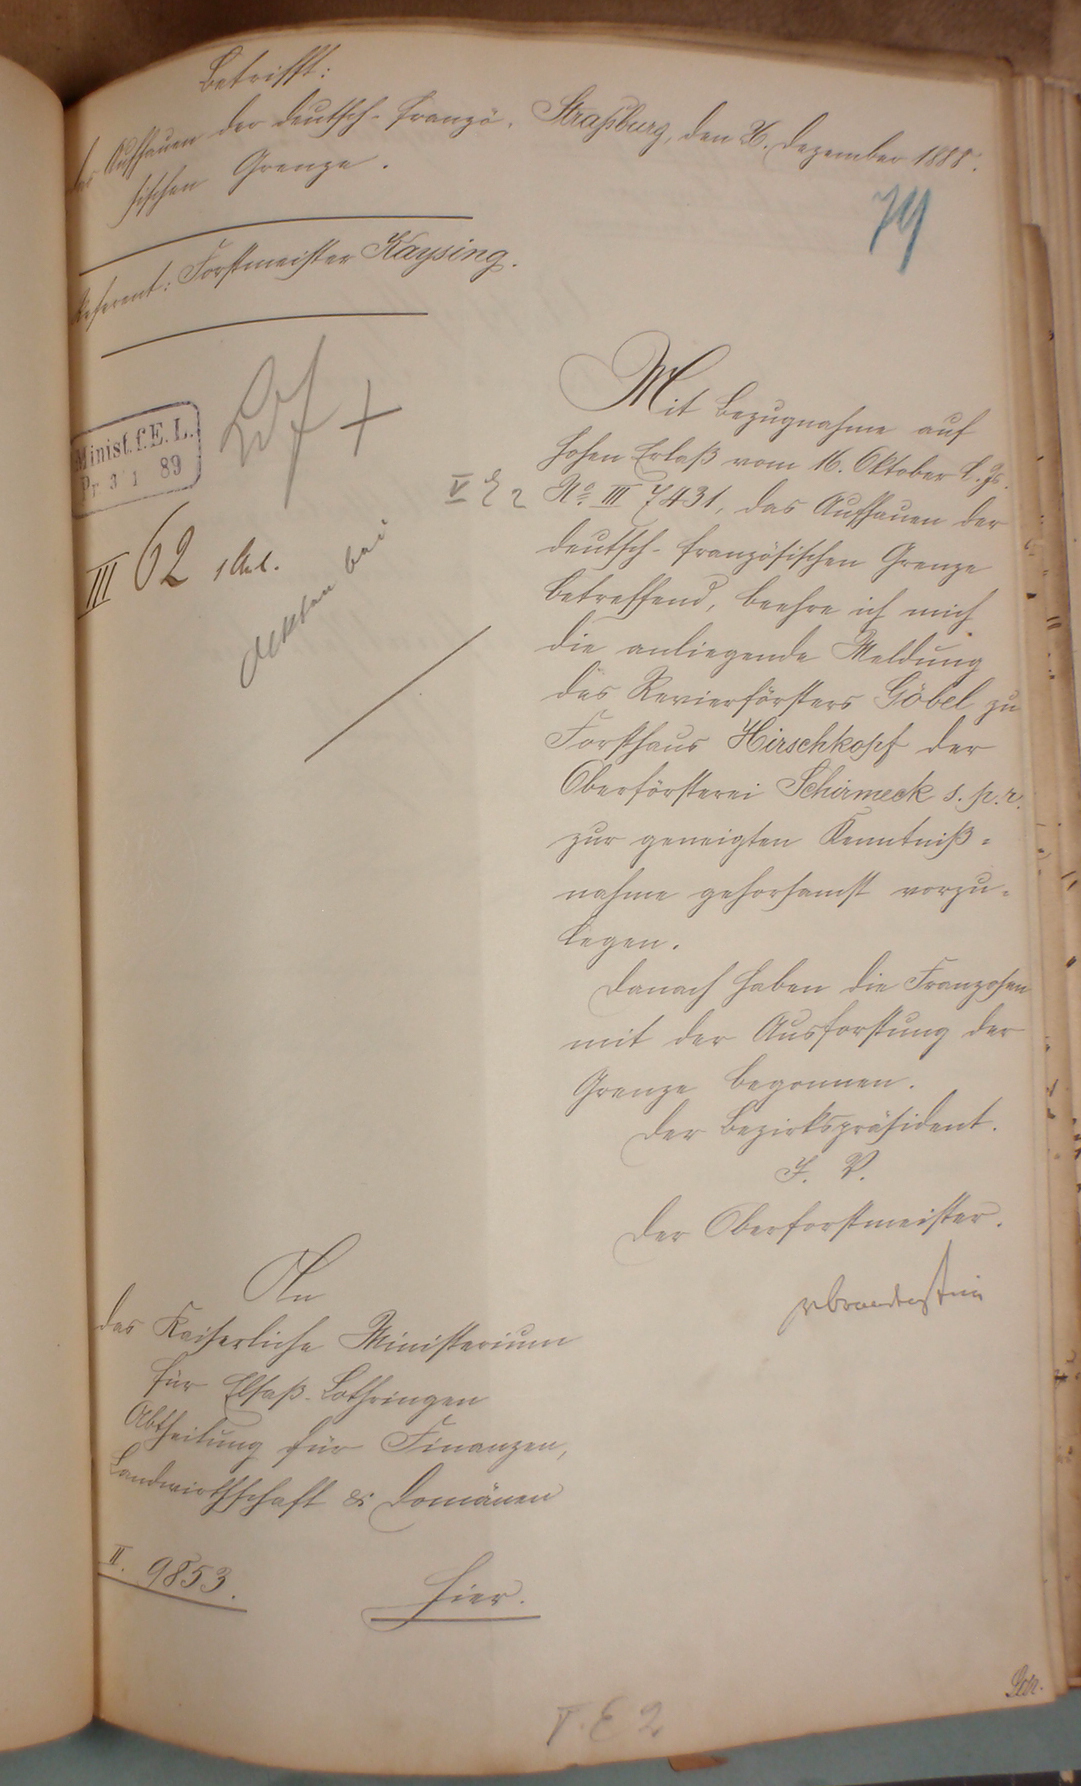 Betrifft:
das Aufhauen der deutsch-franzö-
sischen Grenze.
Straßburg, den 26. Dezember 1888.
79
Referent: Forstmeister Kaysing.
Minist. f. E. L.
Pr 3 1 89
III 62 1 Anl.
V E 2
Akten bei
Mit Bezugnahme auf
hohen Erlaß vom 16. Oktober l. Js.
No III 7431, das Aufhauen der
deutsch-französischen Grenze
betreffend, beehre ich mich
die anliegende Meldung
des Revierförsters Göbel zu
Forsthaus Hirschkopf der
Oberförsterei Schirmeck s. p. r.
zur geneigten Kenntniß-
nahme gehorsamst vorzu-
legen.
Danach haben die Franzosen
mit der Ausforstung der
Grenze begonnen.
Der Bezirkspräsident.
J. V.
Der Oberforstmeister.
An
das Kaiserliche Ministerium
für Elsaß-Lothringen
Abtheilung für Finanzen,
Landwirthschaft & Domänen
II. 9853.
hier.
V. E 2